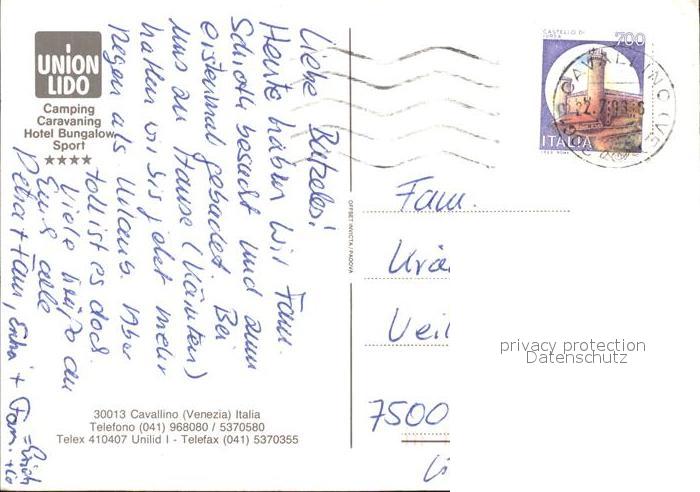 UNION
LIDO
Camping
Caravaning
Hotel Bungalow
Sport
★★★★
Liebe
Heute haben wir Fam.
besucht und zum
erstenmal gebadet. Bei
uns zu Hause (Kärnten)
hatten wir bis jetzt mehr
Regen als Urlaub. Aber
toll ist es doch.
Viele Grüße an
Euch alle
Petra + + Fam.
30013 Cavallino (Venezia) Italia
Telefono (041) 968080 / 5370580
Telex 410407 Unilid I - Telefax (041) 5370355
OFFSET INVICTA / PADOVA
CASTELLO DI
IVREA
700
ITALIA
CAVALLINO (VE)
Fam.
Veil
7500
privacy protection
Datenschutz